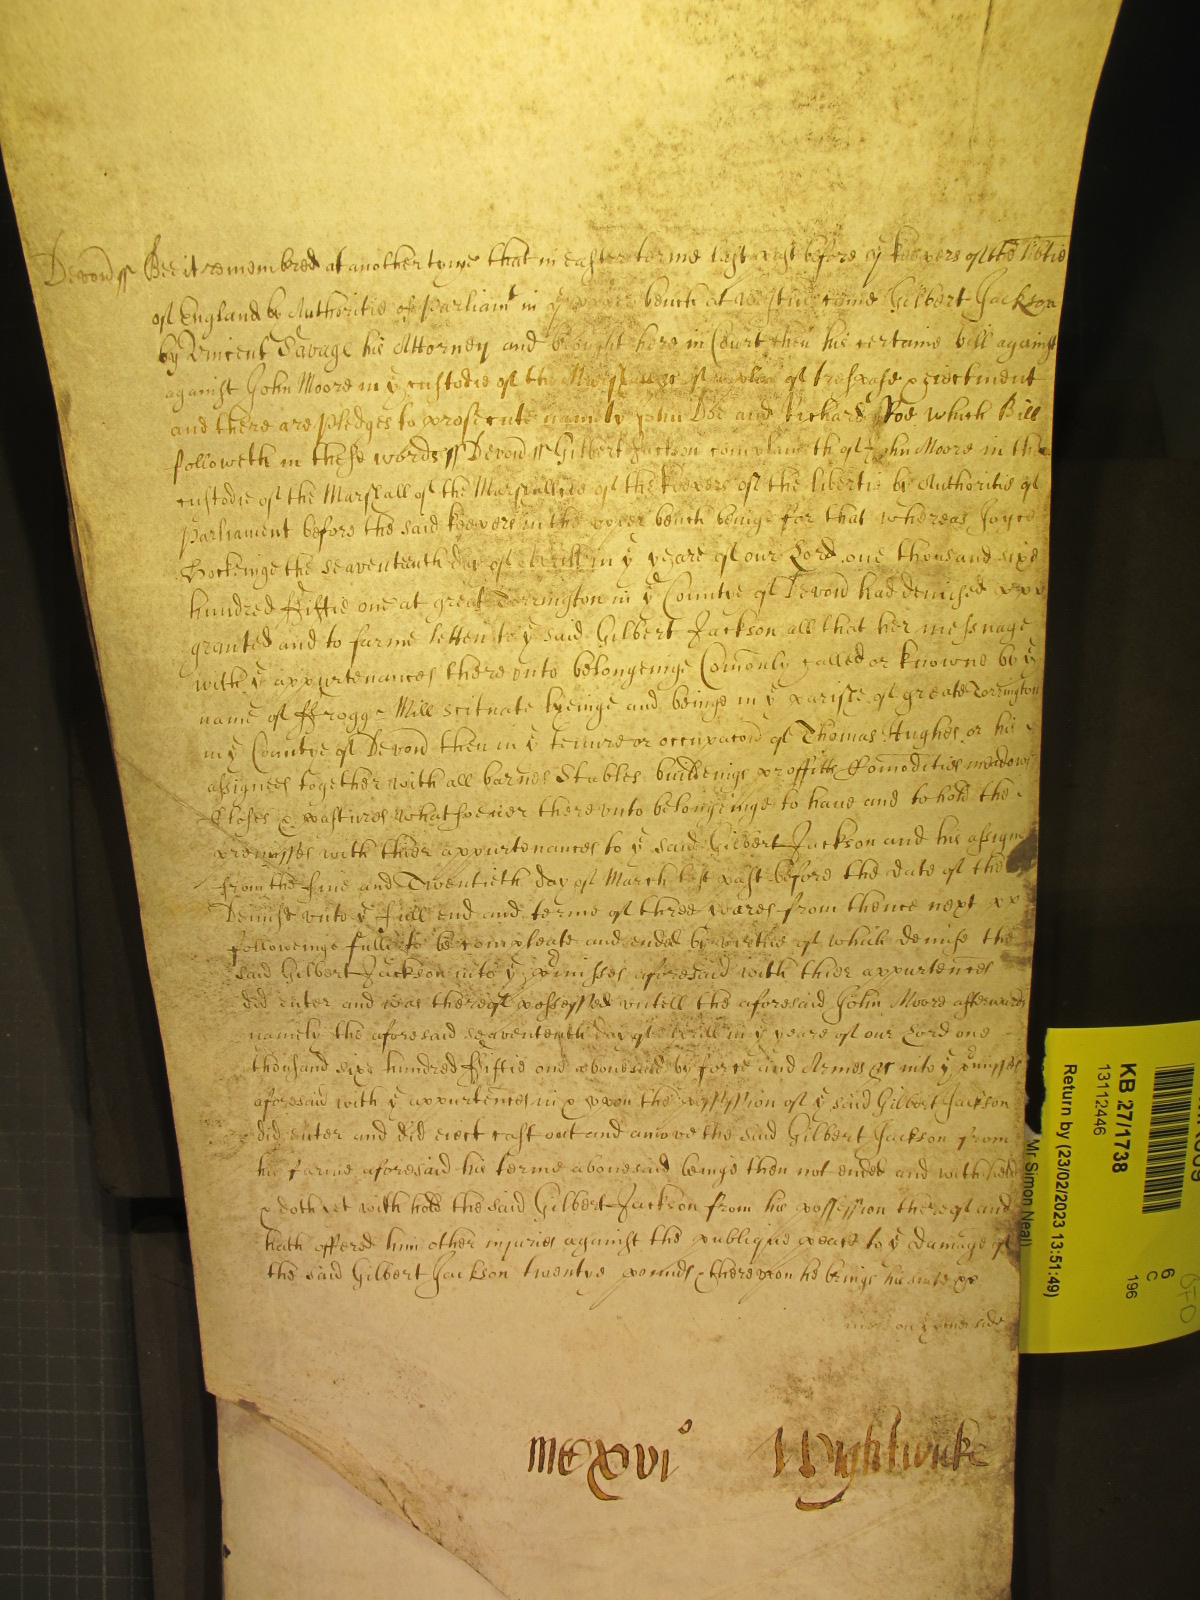 Devon ss Bee it remembred at another tyme that in Easter terme last past before ye keepers of the libtie
of England by Authoritie of Parliamt in ye upper bench at Westm came Gilbert Jackson
by Vincent Savage his Attorney and brought here in Court then his certaine bill against
against John Moore in ye custodie of the Marshall &c of a plea of trespase & eiectment
and there are pledges to prosecute namely John Doe and Richard Roe which Bill
followeth in these words ss Devon ss Gilbert Jackson complaineth of John Moore in the
custodie of the Marshall of the Marshallsie of the keepers of the libertie by Authoritie of
Parliament before the said keepers in the upper bench beinge for that whereas Joyce
Hockeinge the seaventeenth day of Aprill in ye yeare of our Lord one thousand sixe
hundred fiftie one at great Torrington in ye Countye of Devon had demised
granted and to farme letten to ye said Gilbert Jackson all that her messuage
with ye appurtenances there unto belongeinge Comonly called or knowne by ye
name of ffrogge Mill scituate lyeinge and beinge in ye parishe of greate Torrington
in ye Countye of Devon then in ye tenure or occupacon of Thomas Hughes or his
assignes together with all barnes Stables buildenigs proffitts Comodities meadows
Closes & pastures whatsoever there unto belongeinge to have and to hold the
premisses with thier appurtenances to ye said Gilbert Jackson and his assignes
from the five and Twentieth day of March last past before the date of the
Demise unto ye full end and terme of three yeares from thence next
followeinge fully to be compleate and ended by virtue of which demise the
said Gilbert Jackson into ye pmisses aforesaid with thier appurtences
did enter and was thereof possessed untell the aforesaid John Moore afterwards
namely the aforesaid seaventeenth day of Aprill in ye yeare of our Lord one
thousand sixe hundred fiftie one abovesaid by force and Armes &c into ye pmisses
aforesaid with ye appurtences in & upon the possession of ye said Gilbert Jackson
did enter and did eiect cast out and amove the said Gilbert Jackson from
his farme aforesaid his terme abovesaid beinge then not ended and with held
& doth yet with hold the said Gilbert Jackson from his possession thereof and
hath offered him other injuries against the publique peace to ye damage of
the said Gilbert Jackson twentye pounds & thereupon he brings his suite &c
on ye other side
mcxvio Wightwicke
KB 27/1738
13112446
Return by (23/02/2023 13:51:49)
Mr Simon Neal)
6
C
196